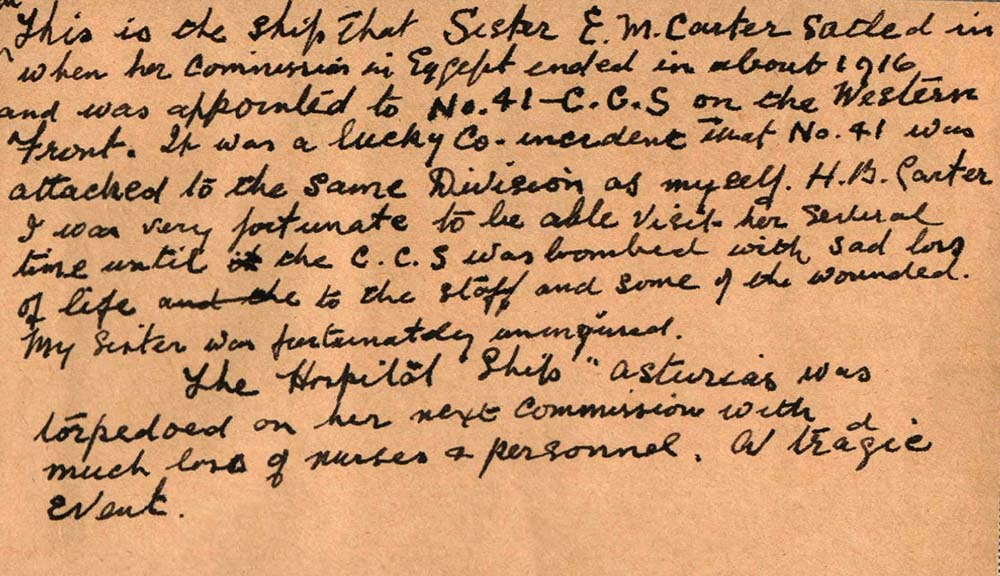 This is the ship that Sister E. M. Carter sailed in
when her Commission in Egypt ended in about 1916
and was appointed to No. 41 - C.C.S on the Western
Front. It was a lucky Co-incident that No. 41 was
attached to the same Division as myself. H.B. Carter
I was very fortunate to be able Visit her several
time until it the C.C.S was bombed with sad loss
of life and the to the staff and some of the wounded.
My Sister was fortunately uninjured.
The Hospital Ship "Asturias was
torpedoed on her next Commission with
much loss of nurses & personnel. A tragic
Event.